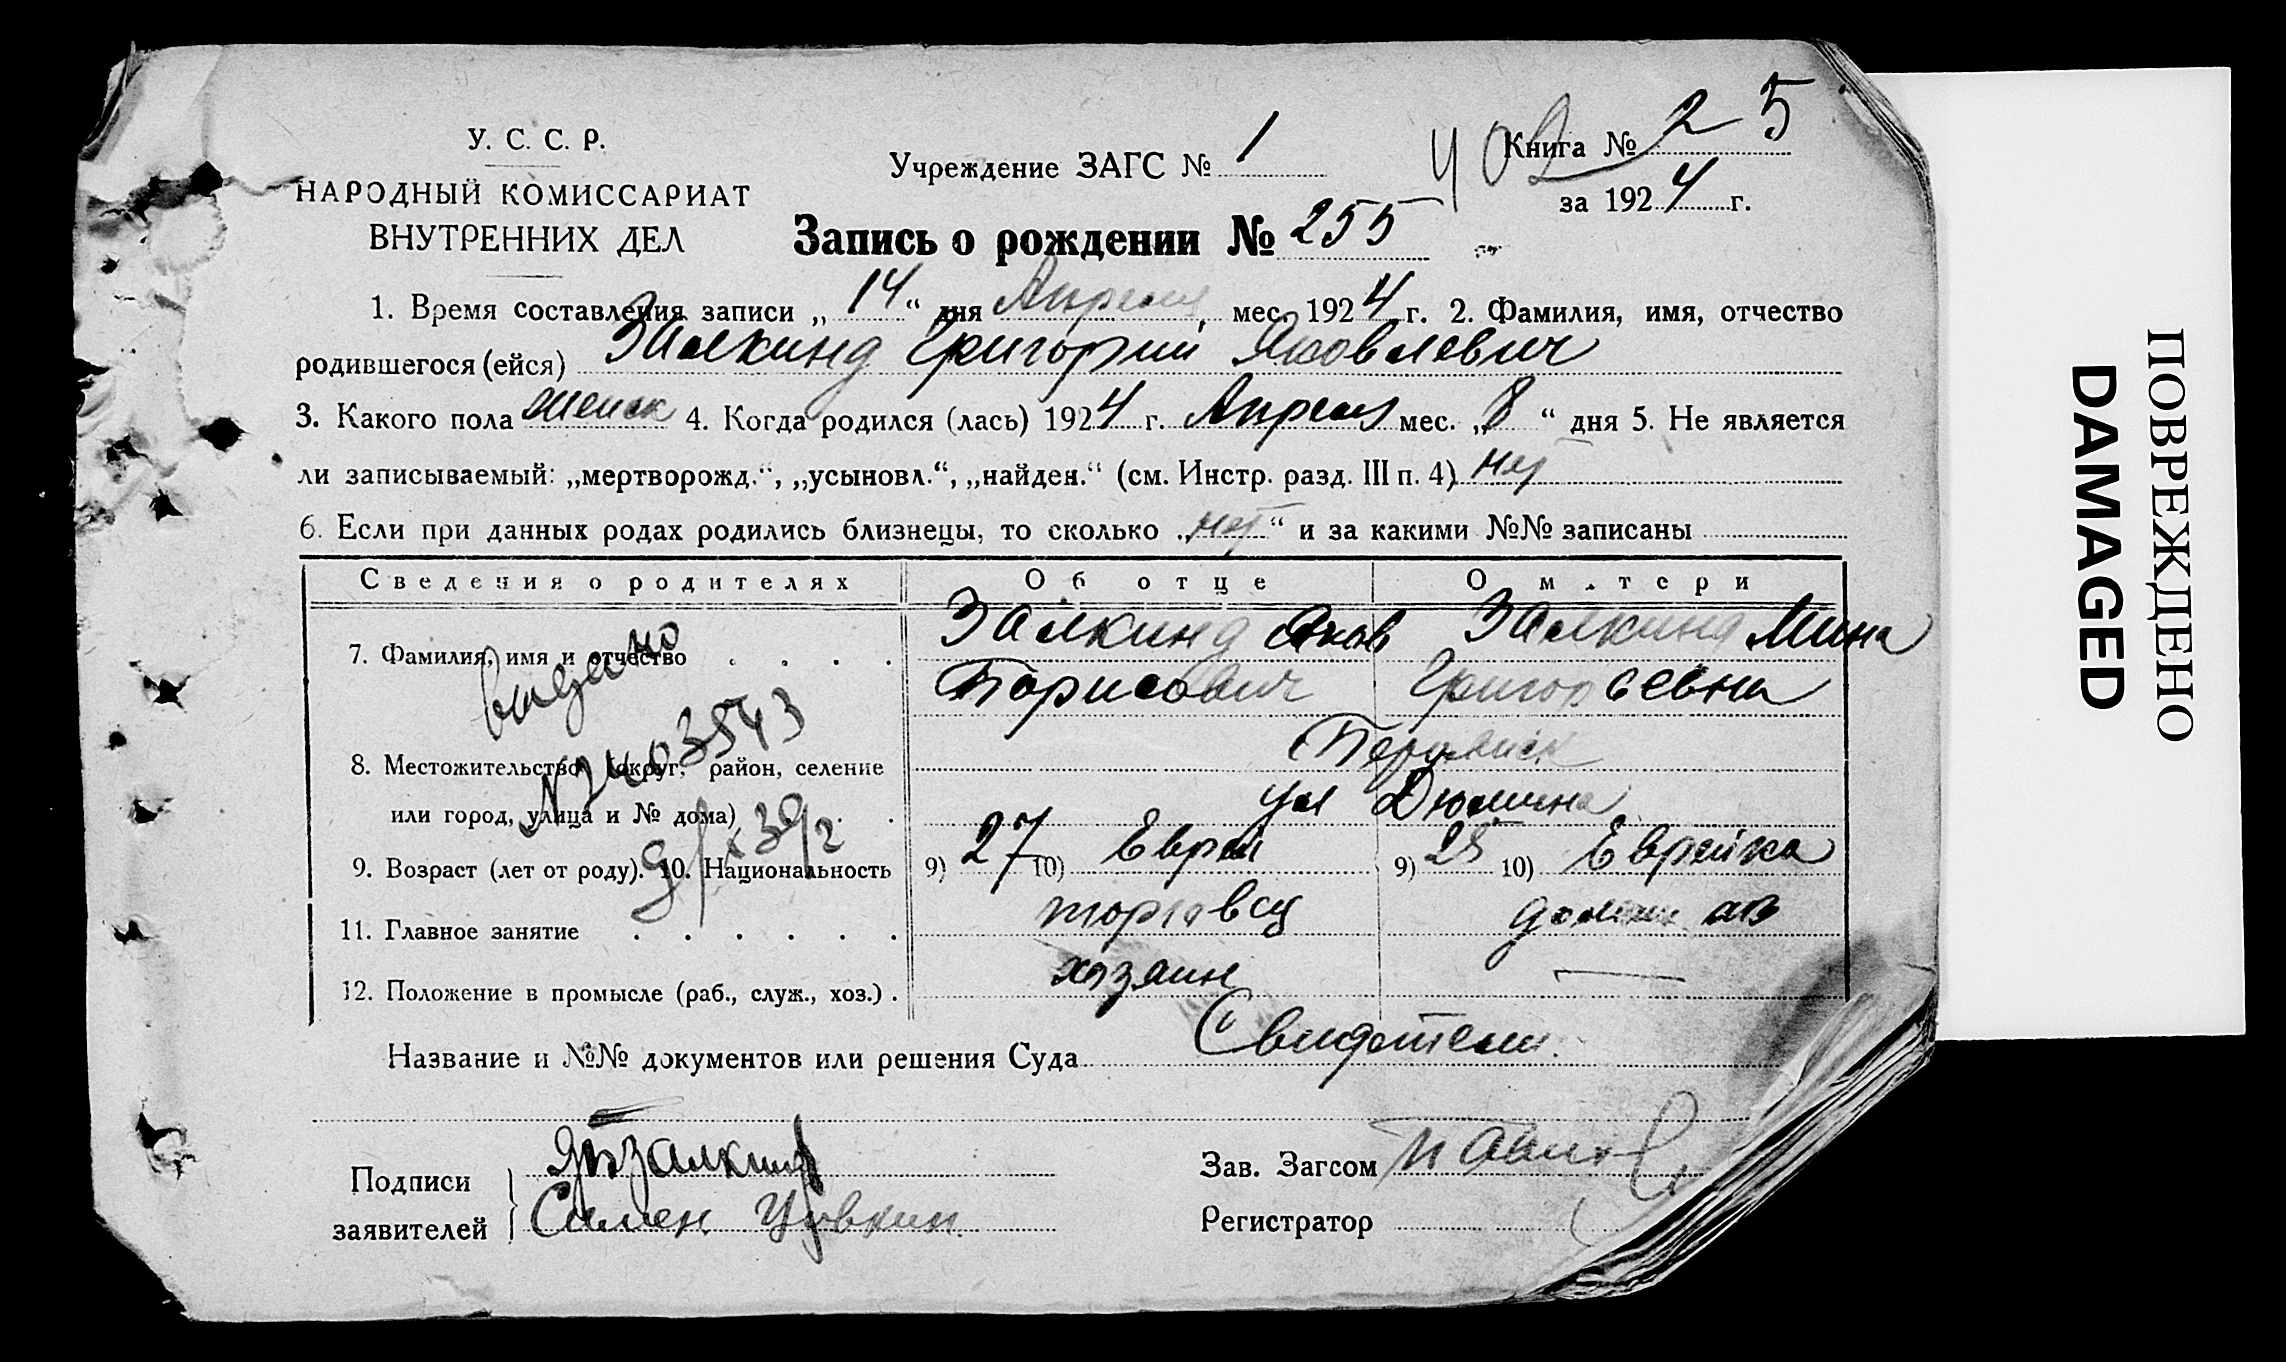 У. С. С. Р.
НАРОДНЫЙ КОМИССАРИАТ
ВНУТРЕННИХ ДЕЛ
Учреждение ЗАГС № 1
402
Книга № 25
за 1924 г.
Запись о рождении № 255
1. Время составления записи „14“ дня Апреля мес. 1924 г. 2. Фамилия, имя, отчество
родившегося (ейся) Залкинд Григорий Яковлевич
3. Какого пола женск 4. Когда родился (лась) 1924 г. Апреля мес. „8“ дня 5. Не является
ли записываемый: „мертворожд.“, „усыновл.“, „найден.“ (см. Инстр. разд. III п. 4) нет
6. Если при данных родах родились близнецы, то сколько „нет“ и за какими №№ записаны
Сведения о родителях Об отце О м тери
7. Фамилия, имя и отчество Залкинд Яков Залкинд Мина
Борисович Григорьевна
выдано
8. Местожительство (округ, район, селение
или город, улица и № дома)
ул Дюмина
9. Возраст (лет от роду). 10. Национальность 9) 27 10) Еврей 9) 25 10) Еврейка
11. Главное занятие торговец
12. Положение в промысле (раб., служ., хоз.) хозяин —
Название и №№ документов или решения Суда Свидетели.
Подписи
заявителей
Залкинд
Семен
Зав. Загсом
Регистратор
ПОВРЕЖДЕНО
DAMAGED